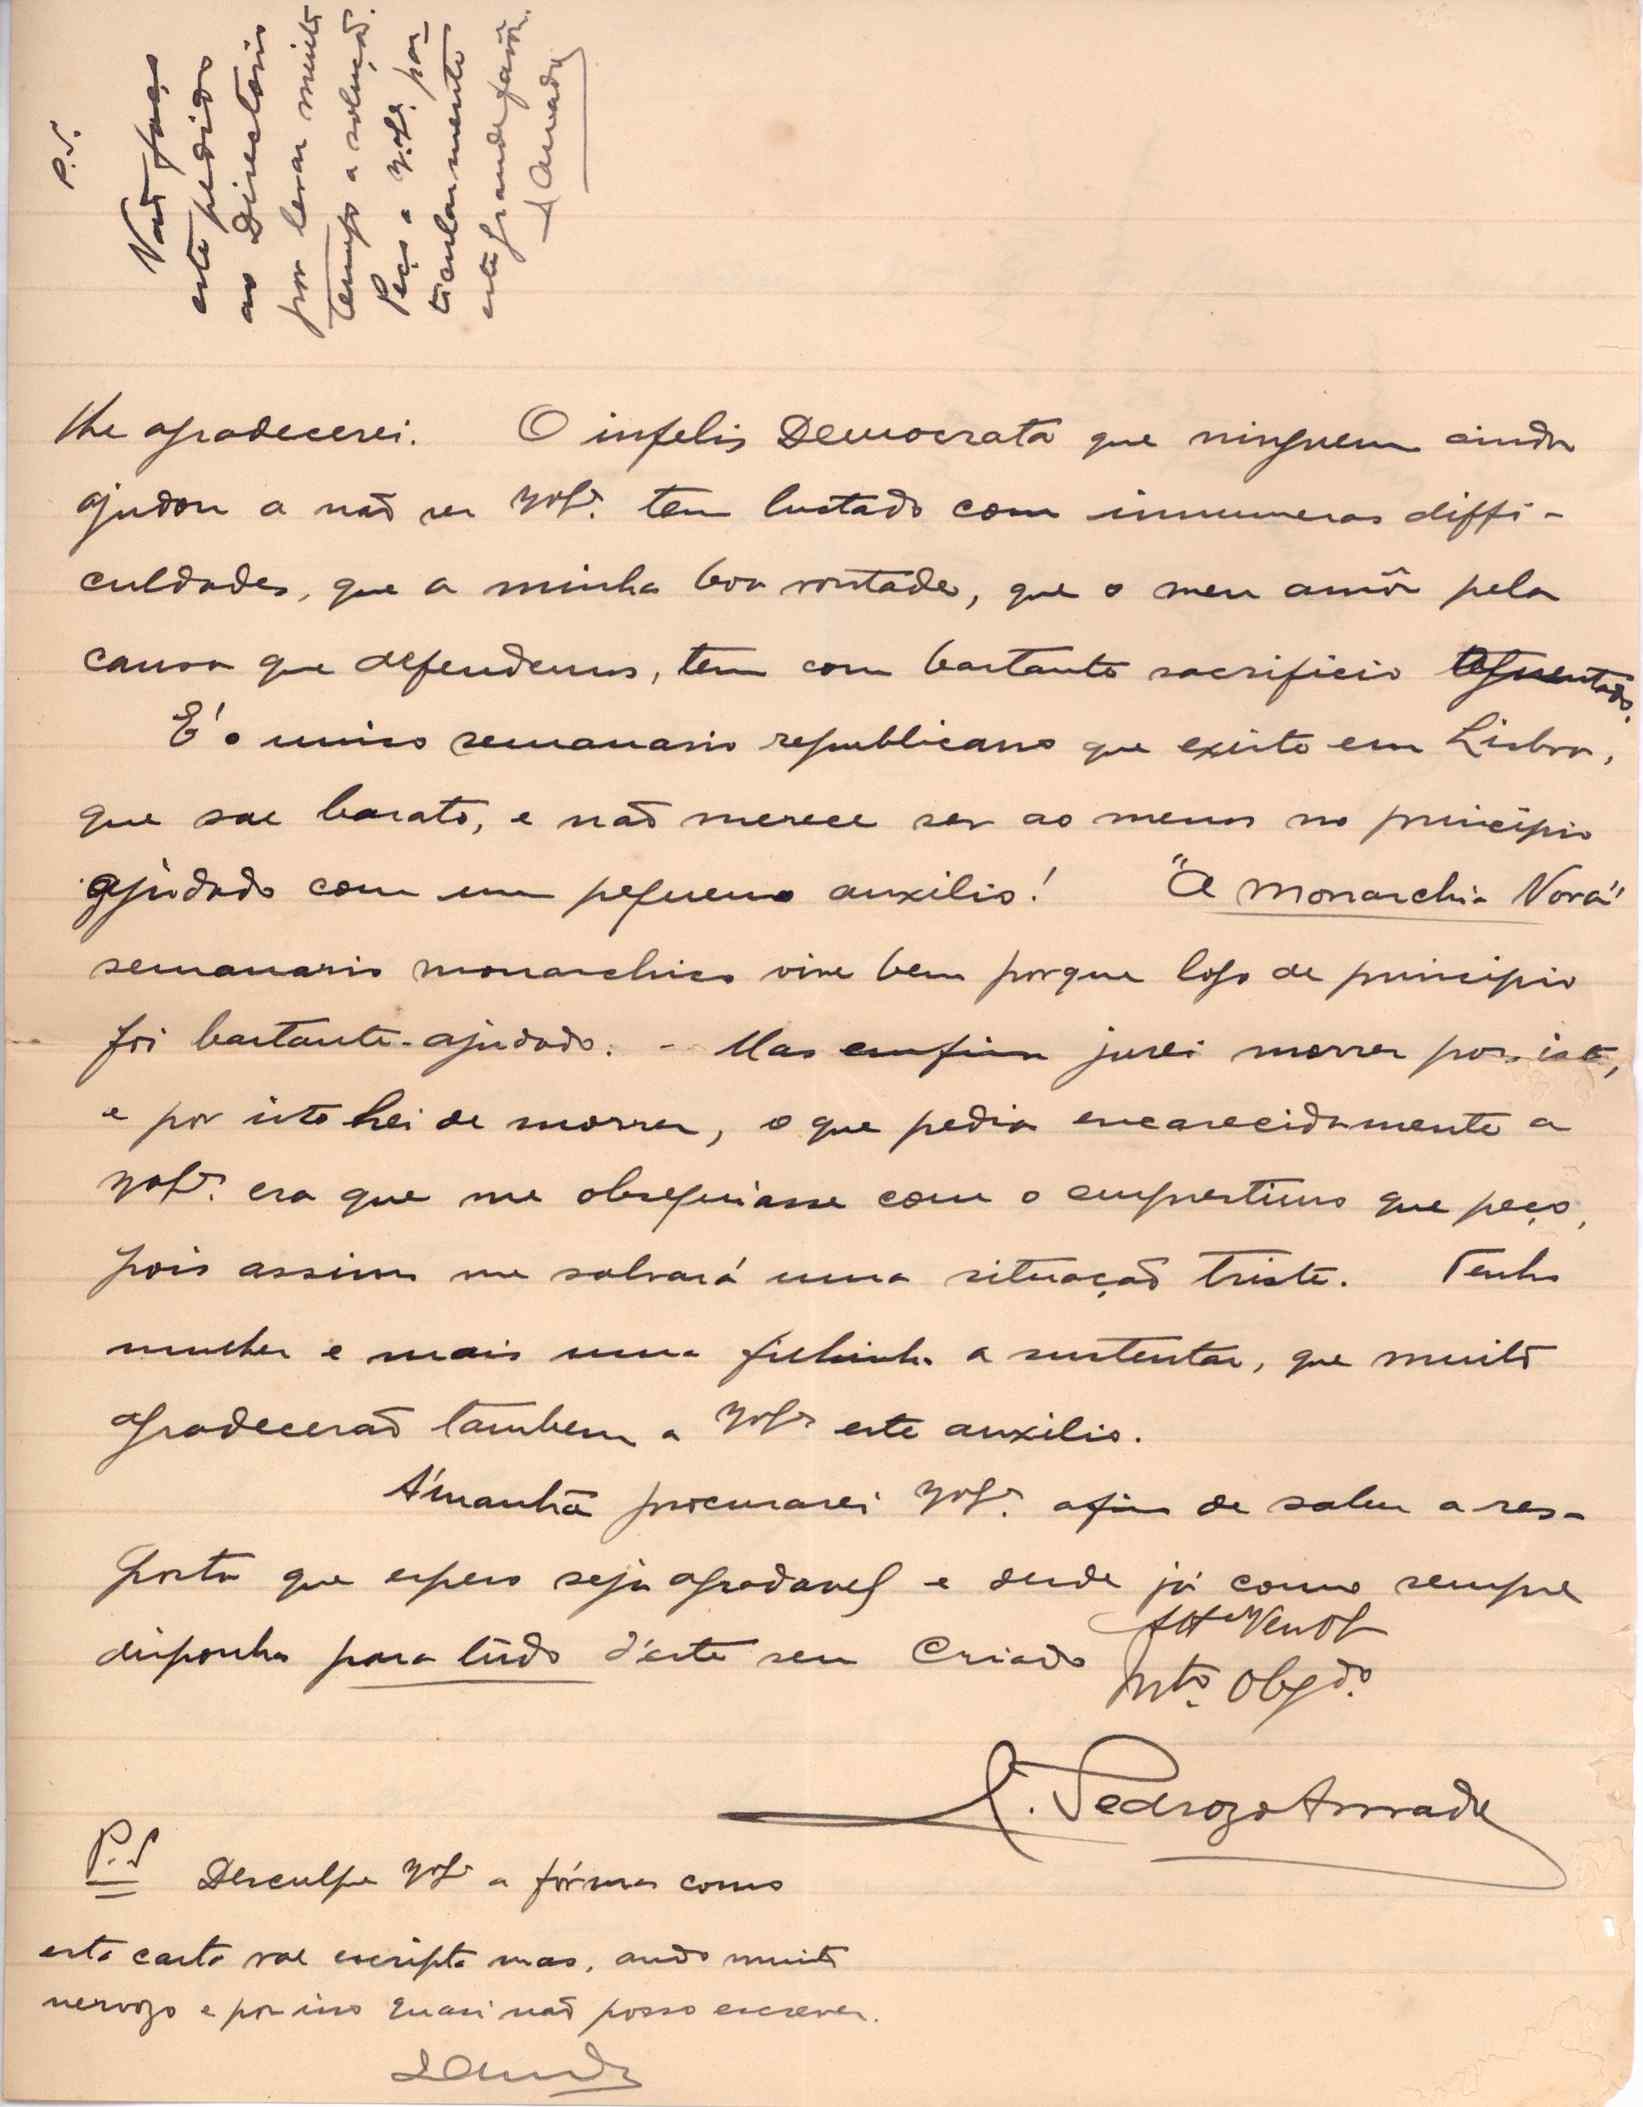 P.S.
Não faço
este pedido
ao Directorio
por levar muito
tempo a solução.
Peço a V. Exª. par-
ticularmente
este grande favôr.
Amado
lhe agradecerei. O infelis Democrata que ninguem ainda
ajudou a não ser V. Exª. tem luctado com innumeras diffi-
culdades, que a minha boa vontade, que o meu amôr pela
causa que defendemos, tem com bastante sacrificio aguentado.
É o unico semanario republicano que existe em Lisboa,
que sae barato, e não merece ser ao menos no principio
ajudado com um pequeno auxilio! "A Monarchia Nova"
semanario monarchico vive bem porque logo de principio
foi bastante ajudado. - Mas emfim jurei morrer por isto,
e por isto hei de morrer, o que pedia encarecidamente a
V. Exª. era que me obsequiasse com o emprestimo que peço,
pois assim me salvará uma situação triste. Tenho
mulher e mais uma filhinha a sustentar, que muito
agradecerão tambem a V. Exª este auxilio.
Àmanhã procurarei V. Exª. afim de saber a res-
posta que espero seja agradavel e desde já como sempre
disponha para tudo d'este seu Criado Attº Venor
Mtº. Obgdº.
Pedrozo Amado
P.S Desculpe V. Exª a fórma como
esta carta vae escripta mas, ando muito
nervozo e por isso quasi não posso escrever.
Amado